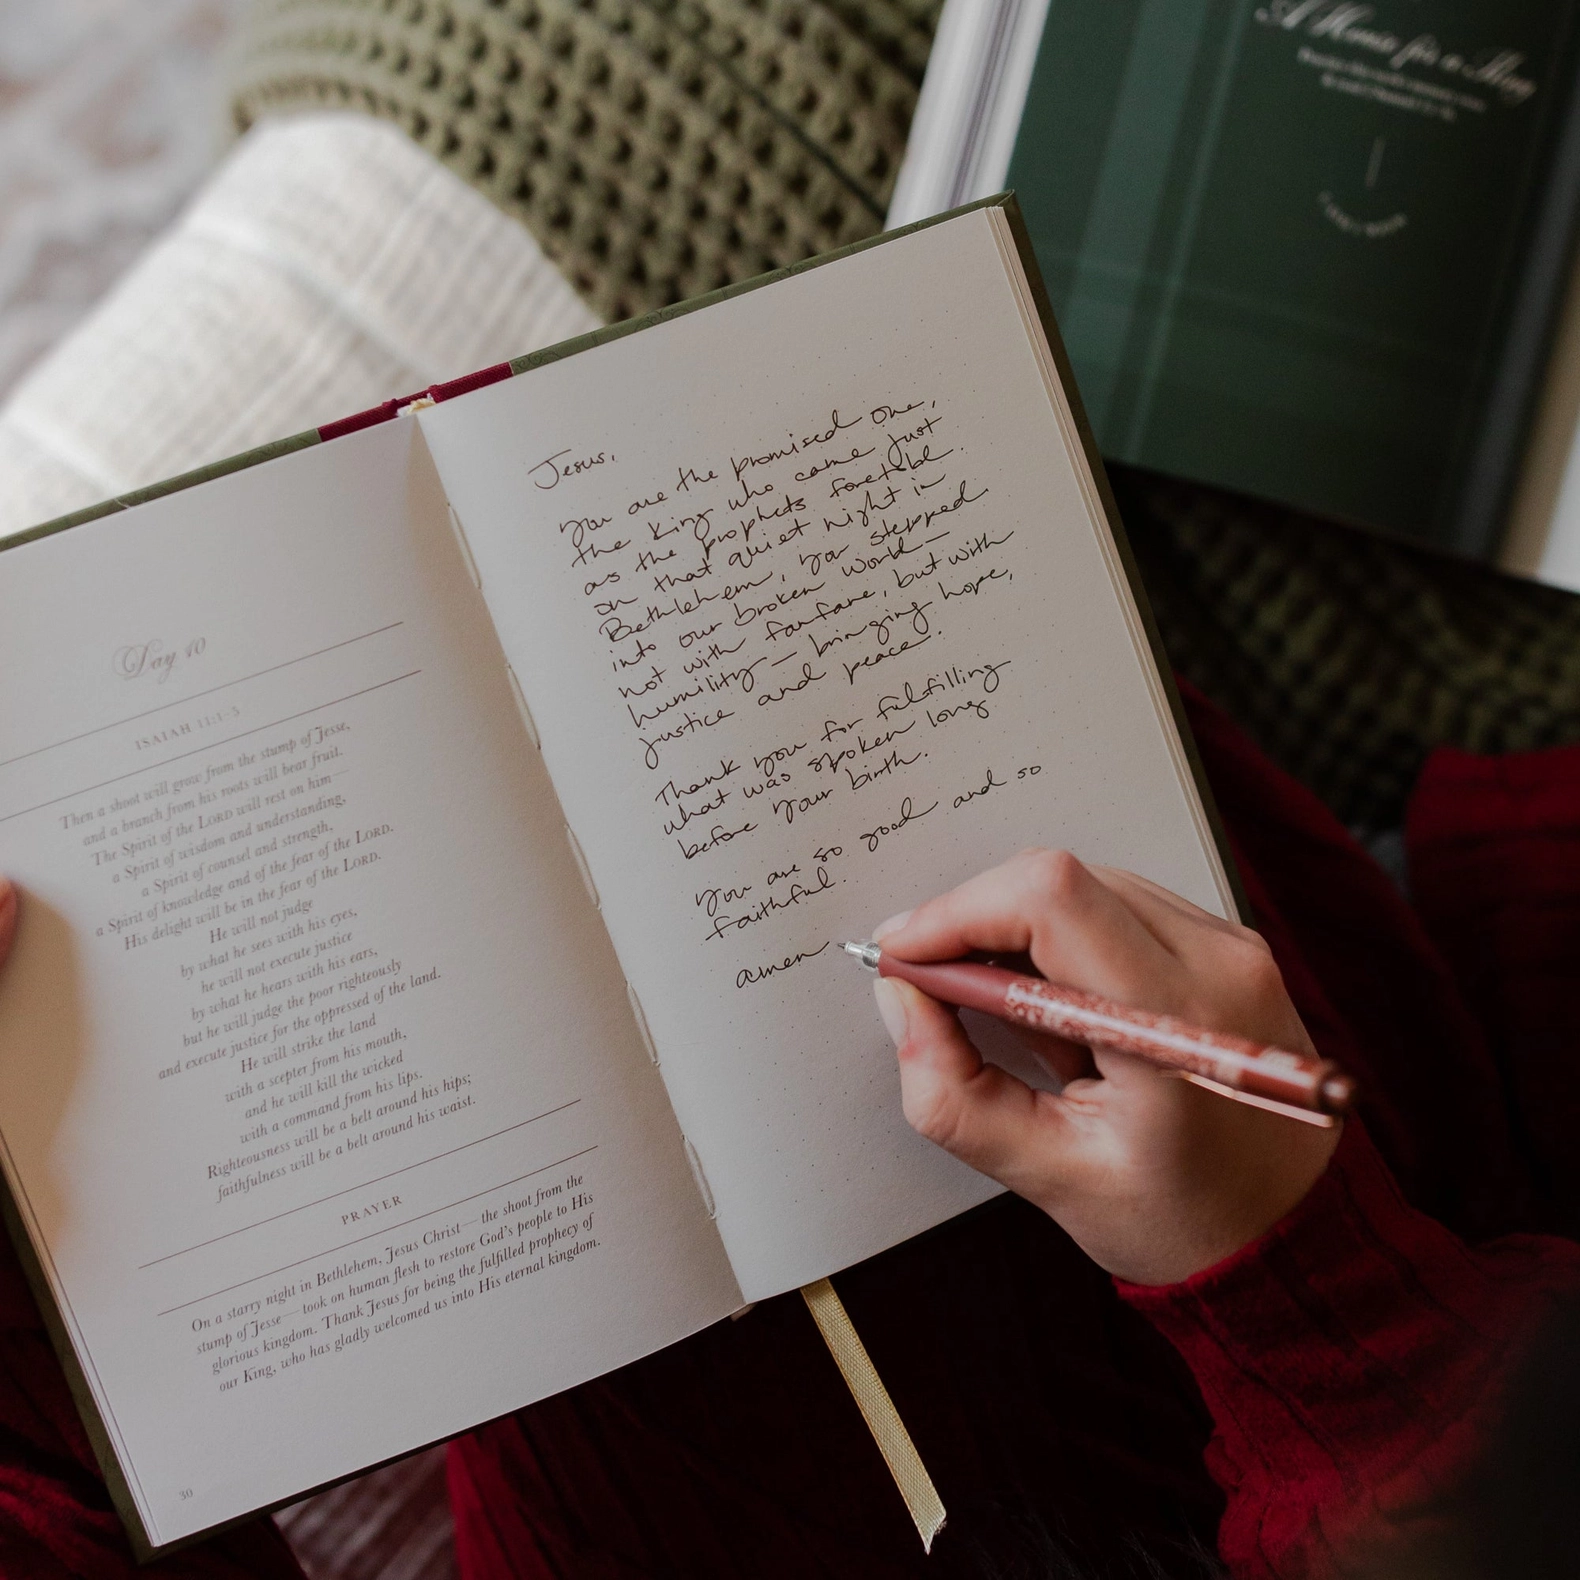 Day 10
ISAIAH 11:1-5
Then a shoot will grow from the stump of Jesse,
and a branch from his roots will bear fruit.
The Spirit of the LORD will rest on him—
a Spirit of wisdom and understanding,
a Spirit of counsel and strength,
a Spirit of knowledge and of the fear of the LORD.
His delight will be in the fear of the LORD.
He will not judge
by what he sees with his eyes,
he will not execute justice
by what he hears with his ears,
but he will judge the poor righteously
and execute justice for the oppressed of the land.
He will strike the land
with a scepter from his mouth,
and he will kill the wicked
with a command from his lips.
Righteousness will be a belt around his hips;
faithfulness will be a belt around his waist.
PRAYER
On a starry night in Bethlehem, Jesus Christ—the shoot from the
stump of Jesse—took on human flesh to restore God's people to His
glorious kingdom. Thank Jesus for being the fulfilled prophecy of
our King, who has gladly welcomed us into His eternal kingdom.
30
Jesus,
You are the promised one,
the King who came just
as the prophets foretold.
on that quiet night in
Bethlehem, you stepped
into our broken world—
not with fanfare, but with
humility—bringing hope,
justice and peace.
Thank you for fulfilling
what was spoken long
before your birth.
You are so good and so
faithful.
amen
A for a